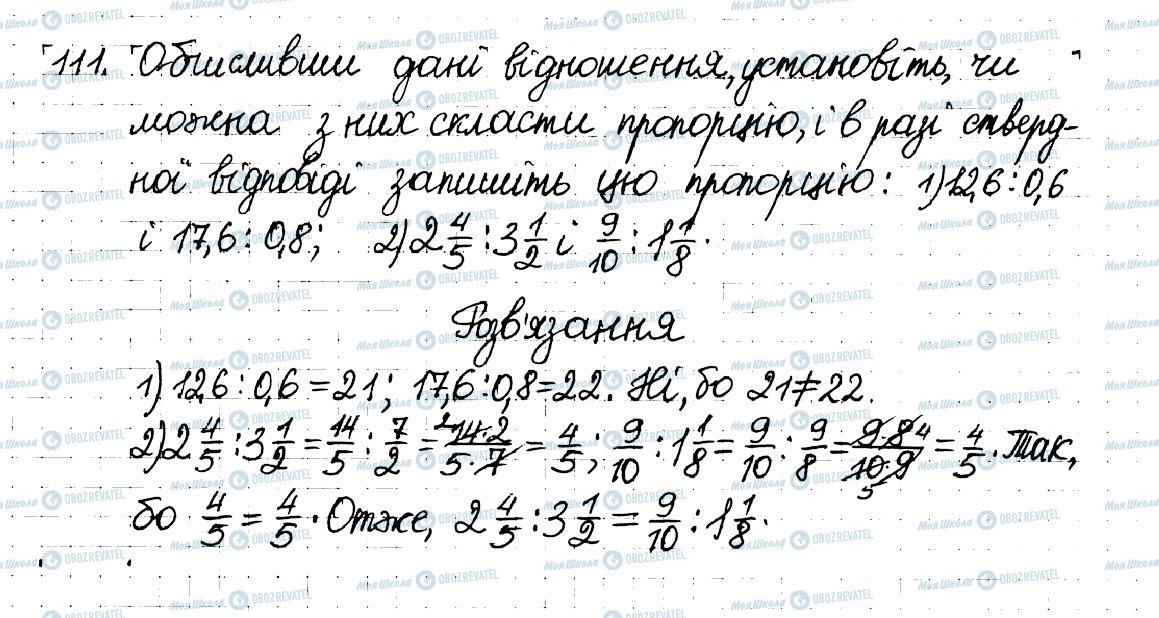 111. Обчисливши дані відношення, установіть, чи
можна з них скласти пропорцію, і в разі стверд-
ної відповіді запишіть цю пропорцію: 1) 12,6 : 0,6
і 17,6 : 0,8; 2) 2 4/5 : 3 1/2 і 9/10 : 1 1/8.
Розв'язання
1) 12,6 : 0,6 = 21; 17,6 : 0,8 = 22. Ні, бо 21 ≠ 22.
2) 2 4/5 : 3 1/2 = 14/5 : 7/2 = 14·2/5·7 = 4/5; 9/10 : 1 1/8 = 9/10 : 9/8 = 9·8/10·9 = 4/5. Так,
бо 4/5 = 4/5. Отже, 2 4/5 : 3 1/2 = 9/10 : 1 1/8.
МояШкола OBOZREVATEL